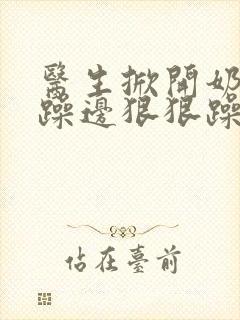 醫生掀開奶
躁邊狠狠躁
佔在臺前